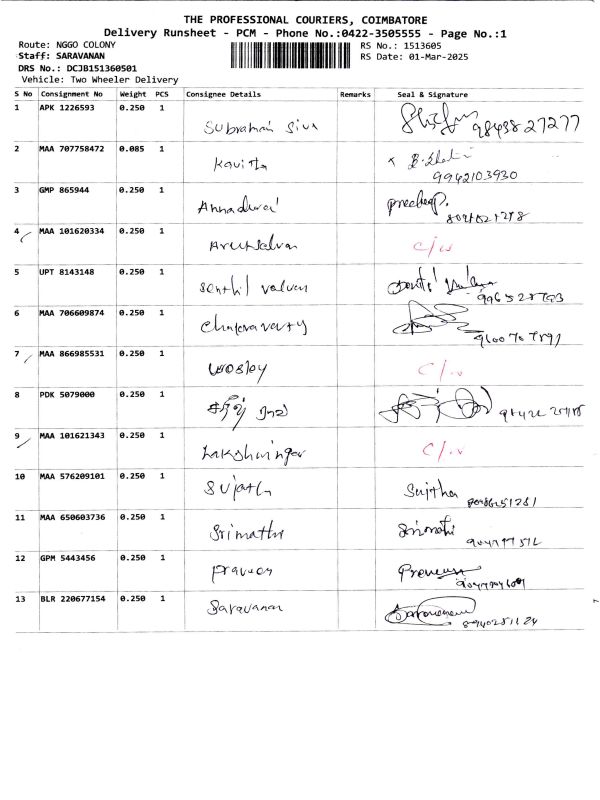 THE PROFESSIONAL COURIERS, COIMBATORE
Delivery Runsheet - PCM - Phone No.:0422-3505555 - Page No.:1
Route: NGGO COLONY RS No.: 1513605
Staff: SARAVANAN RS Date: 01-Mar-2025
DRS No.: DCJB151360501
Vehicle: Two Wheeler Delivery
S No Consignment No Weight PCS Consignee Details Remarks Seal & Signature
1 APK 1226593 0.250 1
Subramani Siva 9843827277
2 MAA 707758472 0.085 1
Kavitha 9942103930
3 GMP 865944 0.250 1
Annadurai
4 MAA 101620334 0.250 1
Arutselvan C/W
5 UPT 8143148 0.250 1
Senthil
6 MAA 706609874 0.250 1
Chakravarty
7 MAA 866985531 0.250 1
Wosley C/W
8 PDK 5079000 0.250 1
9 MAA 101621343 0.250 1
C/W
10 MAA 576209101 0.250 1
Sujatha Sujitha
11 MAA 650603736 0.250 1
Srimathi
12 GPM 5443456 0.250 1
Praveen
13 BLR 220677154 0.250 1
Saravanan